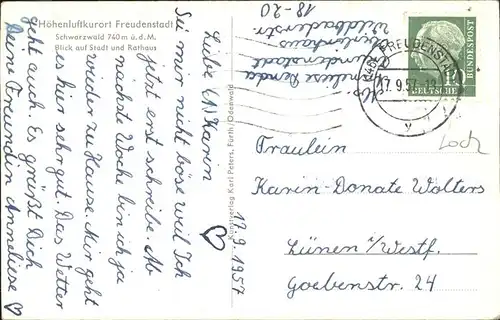 Höhenluftkurort Freudenstadt
Schwarzwald 740 m ü. d. M.
Blick auf Stadt und Rathaus
17.9.1957
Liebe (1) Karin
Sei mir nicht böse weil Ich
jetzt erst schreibe. Ab
nächste Woche bin ich ja
wieder zu Hause. Mir geht
es hier sehr gut. Das Wetter
geht auch. Es grüßt Dich
Deine Freundin Annelise ♡
Kunstverlag Karl Peters, Fürth / Odenwald
♡
Abs.
Freudenstadt
Wildbaderstr.
18-20
FREUDENSTADT
17.9.57
10
DEUTSCHE
BUNDESPOST
Loch
Fräulein
Karin-Donate Wolters
Lünen i/Westf.
Goebenstr. 24